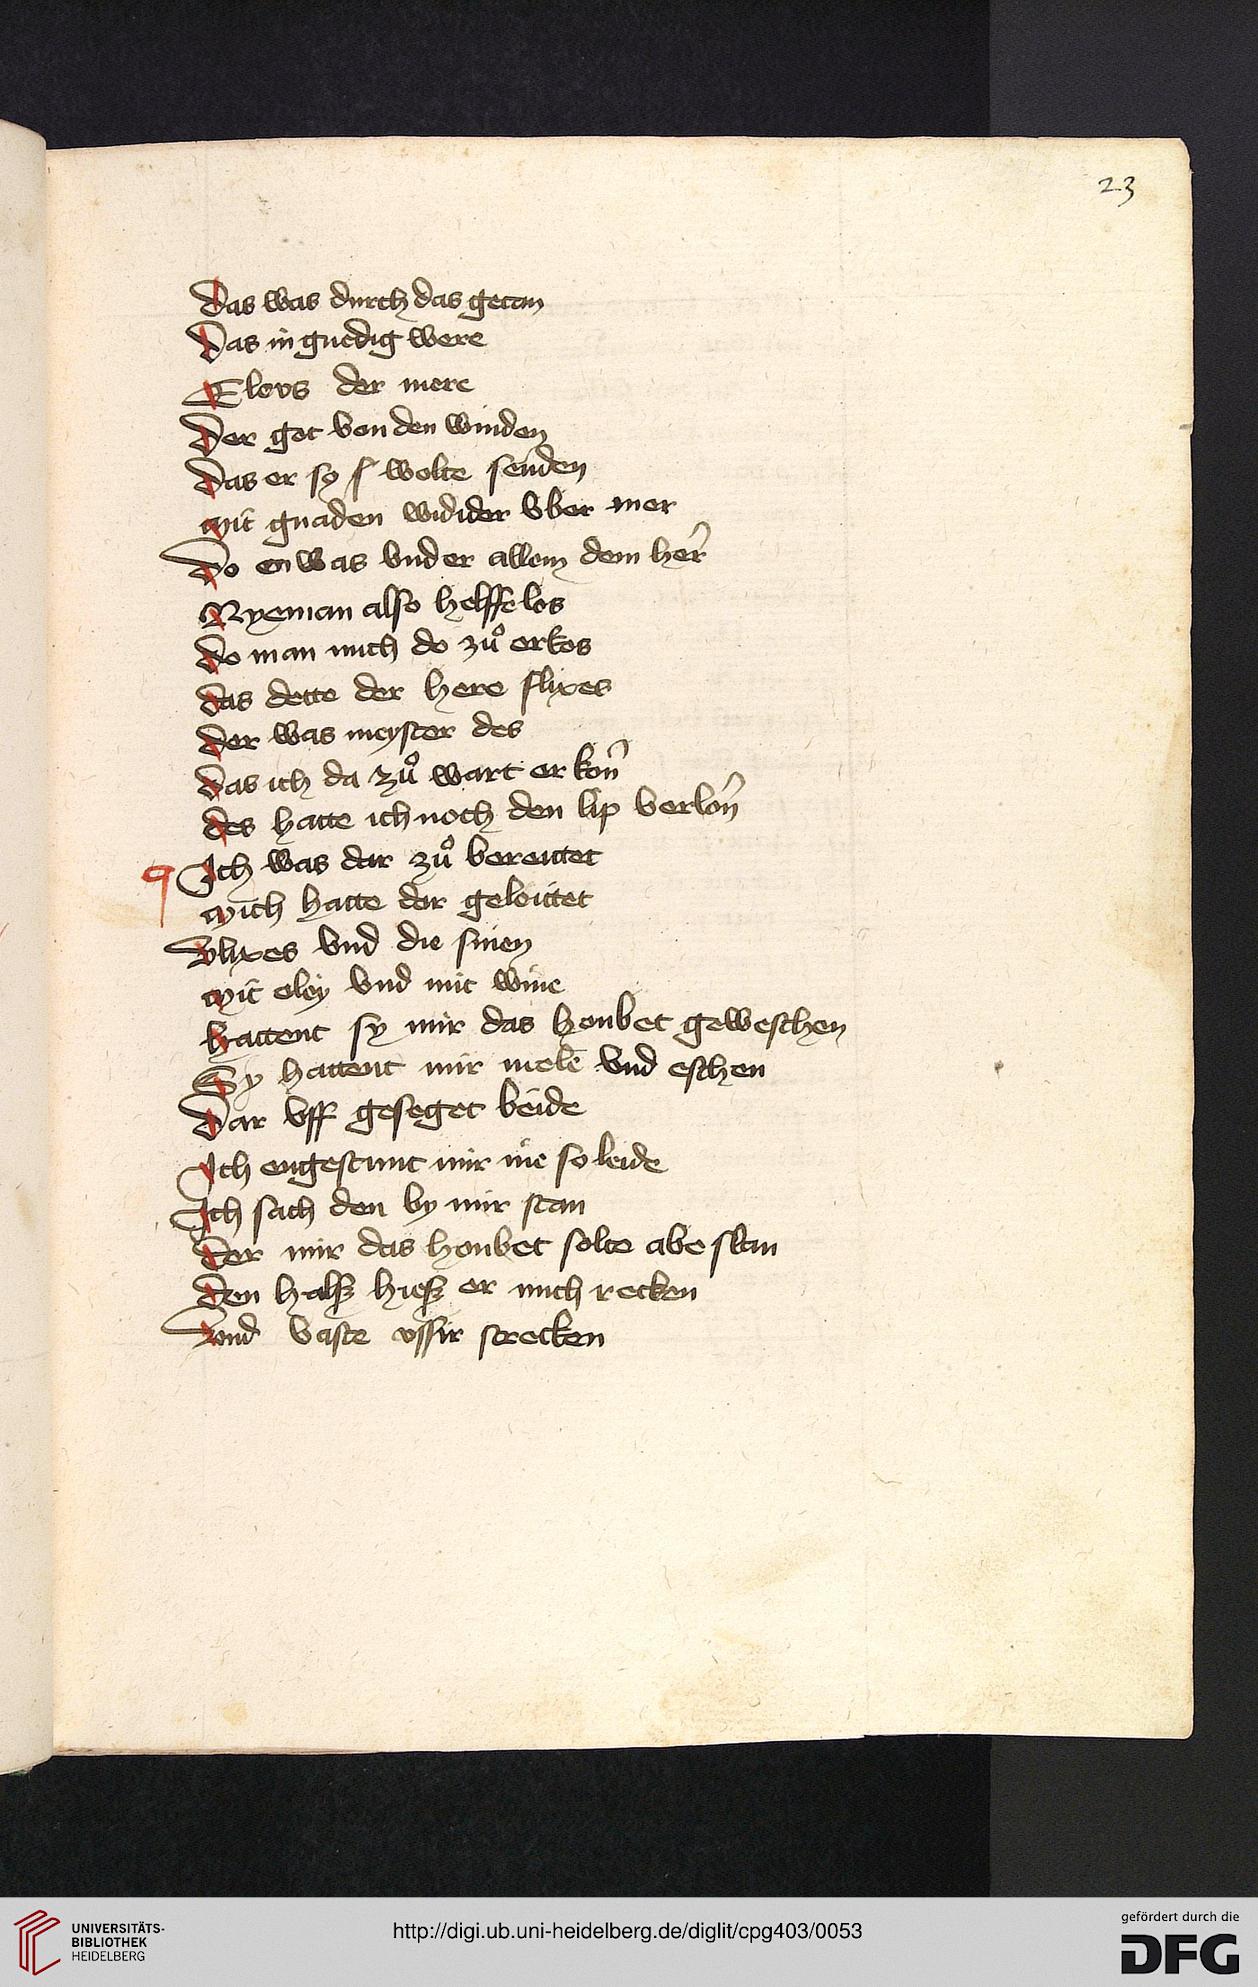 23
Das was durch das getan
Das in gnedig were
Elovs der mere
Der got von den winden
Das er sy ſ wolte senden
Mit gnaden widider vber mer
Do en was vnder allem dem her̄
Nyeman also helffelos
Do man mich do zů erkos
das dette der here flixes
Der was meyster des
Das ich da zů wart er korn̄
des hatte ich noch den lip verlorn̄
Ich was dar zů bereittet
Mich hatte der geleittet
Vlixes vnd die sinen
Mit oley vnd mit wine
Hattent sy mir das houbet geweschen
Sy hattent mir mele vnd eschen
Dar vff geseget beide
Ich engestunt mir nie so leide
Ich sach den by mir stan
Der mir das houbet solte abe slan
Den halsz hiesz er mich recken
Vnd vaste vssir strecken
UNIVERSITÄTS-
BIBLIOTHEK
HEIDELBERG
http://digi.ub.uni-heidelberg.de/diglit/cpg403/0053
gefördert durch die
DFG